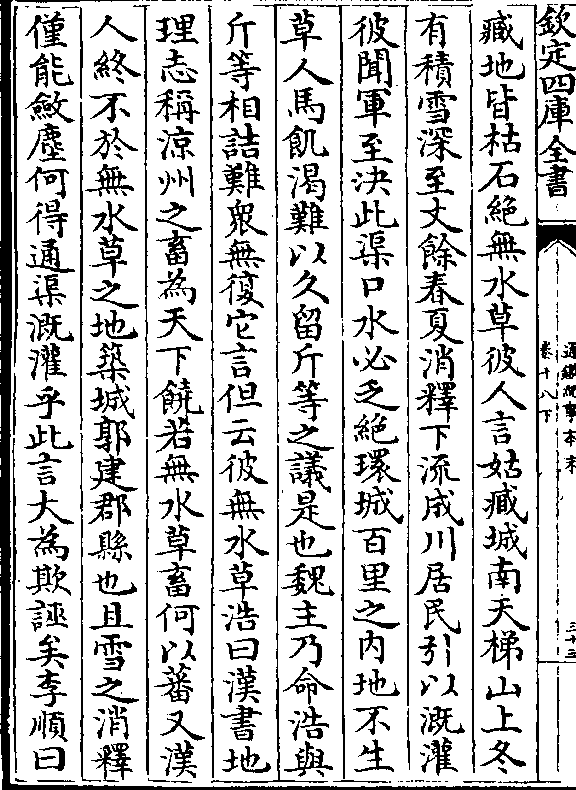 欽定四庫全書
通鑑紀事本末
卷十八下
三十三
臧地皆枯石絶無水草彼人言姑臧城南天梯山上冬
有積雪深至丈餘春夏消釋下流成川居民引以溉灌
彼聞軍至决此渠口水必乏絶環城百里之内地不生
草人馬飢渴難以久留斤等之議是也魏主乃命浩與
斤等相詰難衆無復它言但云彼無水草浩曰漢書地
理志稱涼州之畜為天下饒若無水草畜何以蕃又漢
人終不於無水草之地築城郭建郡縣也且雪之消釋
僅能斂塵何得通渠溉灌乎此言大為欺誣矣李順曰